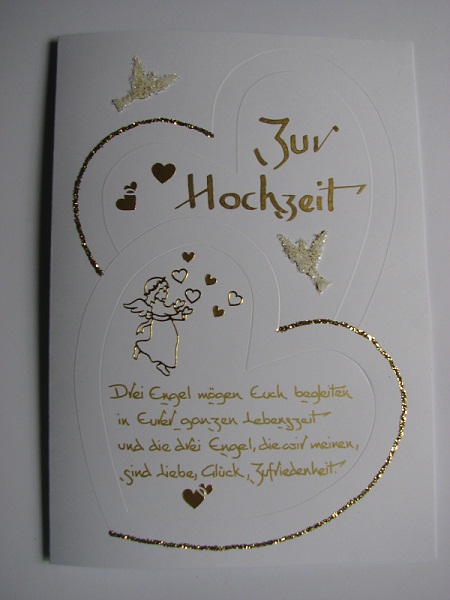 Zur
Hochzeit
Drei Engel mögen Euch begleiten
in Eurer ganzen Lebenszeit
und die drei Engel, die wir meinen,
sind Liebe, Glück, Zufriedenheit